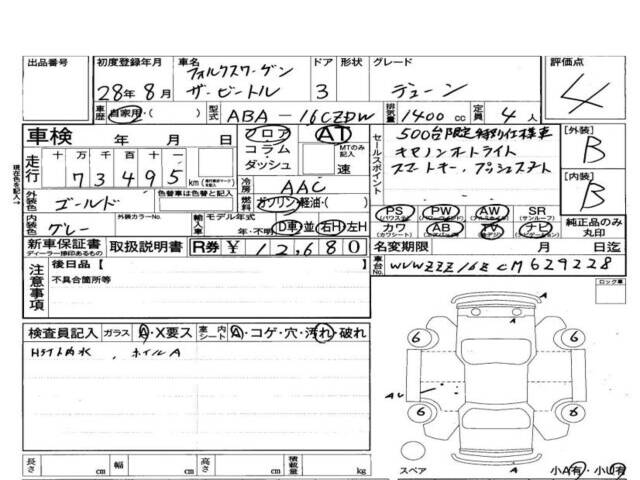 出品番号 初度登録年月 車名 ドア 形状 グレード 評価点
28年8月 フォルクスワーゲン ザ・ビートル 3 デューン 4
車歴 自家用・( ) 型式 ABA-16CZDW 排気量 1400cc 定員 4人
車検 年 月 日 フロア AT セールスポイント 500台限定特別仕様車 [外装] B
走行 十万千百十一 73495 km コラム MTのみ記入 キセノンオートライト
ダッシュ 速 スマートキー、プッシュスタート [内装] B
現在色を記入→ 外装色 ゴールド 色替車は色替と記入 冷房 AAC
燃料 ガソリン・軽油・( ) PS PW AW SR 純正品のみ丸印
内装色 グレー 外装カラーNo. 輸入車 モデル年式 年・不明 D車 並 右H 左H カワ AB TV ナビ
新車保証書 ディーラー捺印あるもの 取扱説明書 R券 ¥12,680 名変期限 月 日迄
車台No. WVWZZZ16ZCM629228
注意事項 後日品【 】 ロック車
不具合箇所等
検査員記入 ガラス A・X要ス 室内シート A・コゲ・穴・汚れ・破れ
Hライト内水、ホイルA
A
A
6 6
AU
6 6
長さ cm 幅 cm 高さ cm 積載量 kg スペア 小A有・小U有